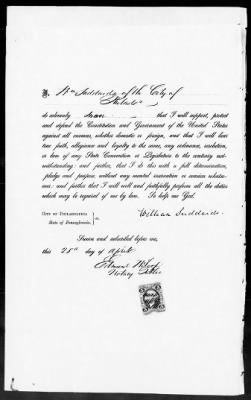 I, Wm Suddards of the City of
Philada
do solemnly swear that I will support, protect
and defend the Constitution and Government of the United States
against all enemies, whether domestic or foreign, and that I will bear
true faith, allegiance and loyalty to the same, any ordinance, resolution,
or law of any State Convention or Legislature to the contrary not-
withstanding; and further, that I do this with a full determination,
pledge and purpose, without any mental reservation or evasion whatso-
ever; and further that I will well and faithfully perform all the duties
which may be required of me by law. So help me God.
William Suddards.
CITY OF PHILADELPHIA
State of Pennsylvania. } ss.
Sworn and subscribed before me,
this 25th day of April
Notary Public